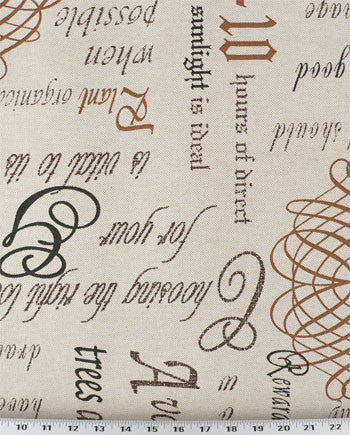 possible
when
Plant organica
is vital to its
for your
Choosing the right lo
-10
hours of direct
sunlight is ideal
nage
good
should
trees
have
10 11 12 13 14 15 16 17 18 19 20 21 22